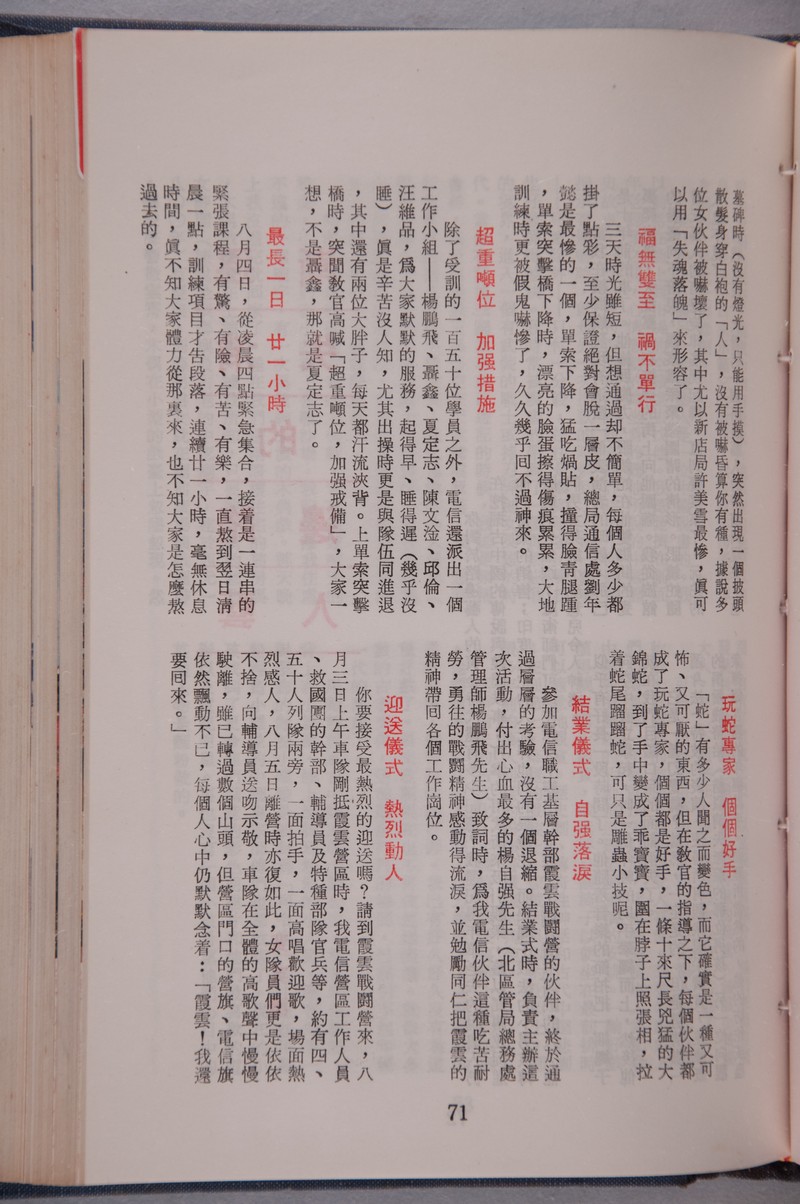 墓碑時（沒有燈光，只能用手摸），突然出現一個披頭
散髮身穿白袍的「人」，沒有被嚇昏算你有種，據說多
位女伙伴被嚇壞了，其中尤以新店局許美雪最慘，眞可
以用「失魂落魄」來形容了。
福無雙至　禍不單行
三天時光雖短，但想通過却不簡單，每個人多少都
掛了點彩，至少保證絕對會脫一層皮，總局通信處劉年
懿是最慘的一個，單索下降，猛吃煱貼，撞得臉靑腿踵
，單索突擊橋下降時，漂亮的臉蛋擦得傷痕累累，大地
訓練時更被假鬼嚇慘了，久久幾乎囘不過神來。
超重噸位　加强措施
除了受訓的一百五十位學員之外，電信還派出一個
工作小組——楊鵬飛、聶鑫、夏定志、陳文淦、邱倫、
汪維品，爲大家默默的服務，起得早、睡得遲（幾乎沒
睡），眞是辛苦沒人知，尤其出操時更是與隊伍同進退
，其中還有兩位大胖子，每天都汗流浹背。上單索突擊
橋時，突聞敎官高喊「超重噸位，加强戒備」，大家一
想，不是聶鑫，那就是夏定志了。
最長一日　廿一小時
八月四日，從凌晨四點緊急集合，接着是一連串的
緊張課程，有驚、有險、有苦、有樂，一直熬到翌日淸
晨一點，訓練項目才告段落，連續廿一小時，毫無休息
時間，眞不知大家體力從那裏來，也不知大家是怎麼熬
過去的。
玩蛇專家　個個好手
「蛇」有多少人聞之而變色，而它確實是一種又可
怖、又可厭的東西，但在敎官的指導之下，每個伙伴都
成了玩蛇專家，個個都是好手，一條十來尺長兇猛的大
錦蛇，到了手中變成了乖寶寶，圍在脖子上照張相，拉
着蛇尾蹓蹓蛇，可只是雕蟲小技呢。
結業儀式　自强落淚
參加電信職工基層幹部霞雲戰鬪營的伙伴，終於通
過層層的考驗，沒有一個退縮。結業式時，負責主辦這
次活動，付出心血最多的楊自强先生（北區管局總務處
管理師楊鵬飛先生）致詞時，爲我電信伙伴這種吃苦耐
勞，勇往的戰鬪精神感動得流淚，並勉勵同仁把霞雲的
精神帶囘各個工作崗位。
迎送儀式　熱烈動人
你要接受最熱烈的迎送嗎？請到霞雲戰鬪營來，八
月三日上午車隊剛抵霞雲營區時，我電信營區工作人員
、救國團的幹部、輔導員及特種部隊官兵等，約有四、
五十人列隊兩旁，一面拍手，一面高唱歡迎歌，場面熱
烈感人，八月五日離營時亦復如此，女隊員們更是依依
不捨，向輔導員送吻示敬，車隊在全體的高歌聲中慢慢
駛離，雖已轉過數個山頭，但營區門口的營旗、電信旗
依然飄動不已，每個人心中仍默默念着：「霞雲！我還
要囘來。」
71